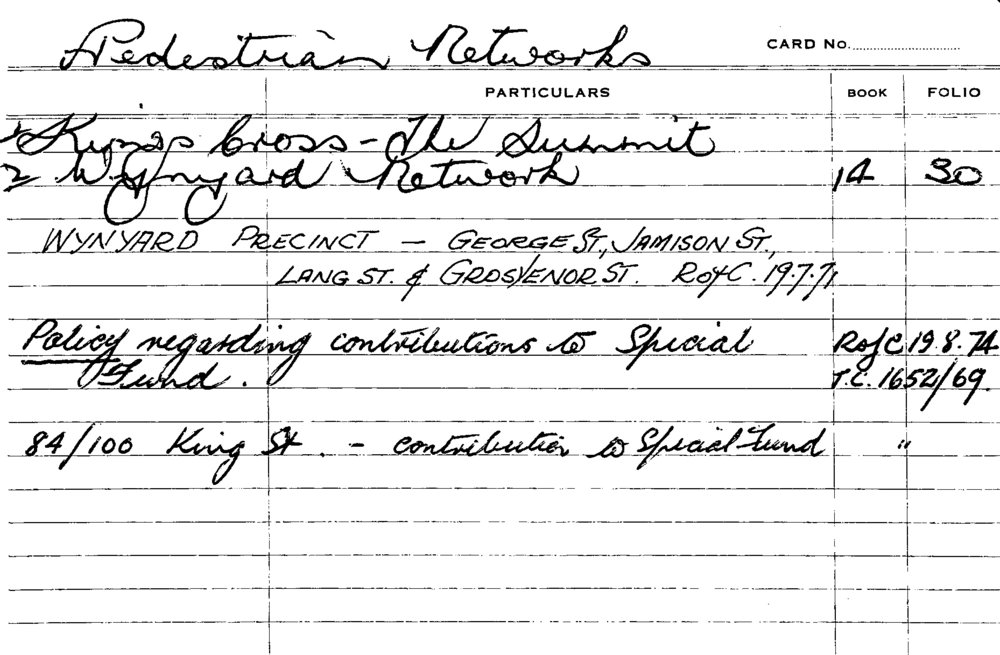 Pedestrian Networks CARD No.
PARTICULARS BOOK FOLIO
1 Kings Cross - The Summit
2 Wynyard Network 14 30
WYNYARD PRECINCT — GEORGE ST, JAMISON ST.,
LANG ST. & GROSVENOR ST. RofC. 19.7.71
Policy regarding contributions to Special RofC 19.8.74
Fund. T.C. 1652/69.
84/100 King St. - contribution to Special Fund "